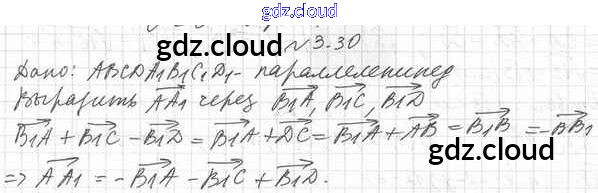 gdz.cloud
gdz.cloud
№3.30
Дано: ABCDA₁B₁C₁D₁- параллелепипед
Выразить AA₁ через B₁A, B₁C, B₁D
gdz.cloud
B₁A + B₁C - B₁D = B₁A + DC = B₁A + AB = B₁B = -BB₁
gdz.cloud
gdz.cloud
=> AA₁ = - B₁A - B₁C + B₁D.